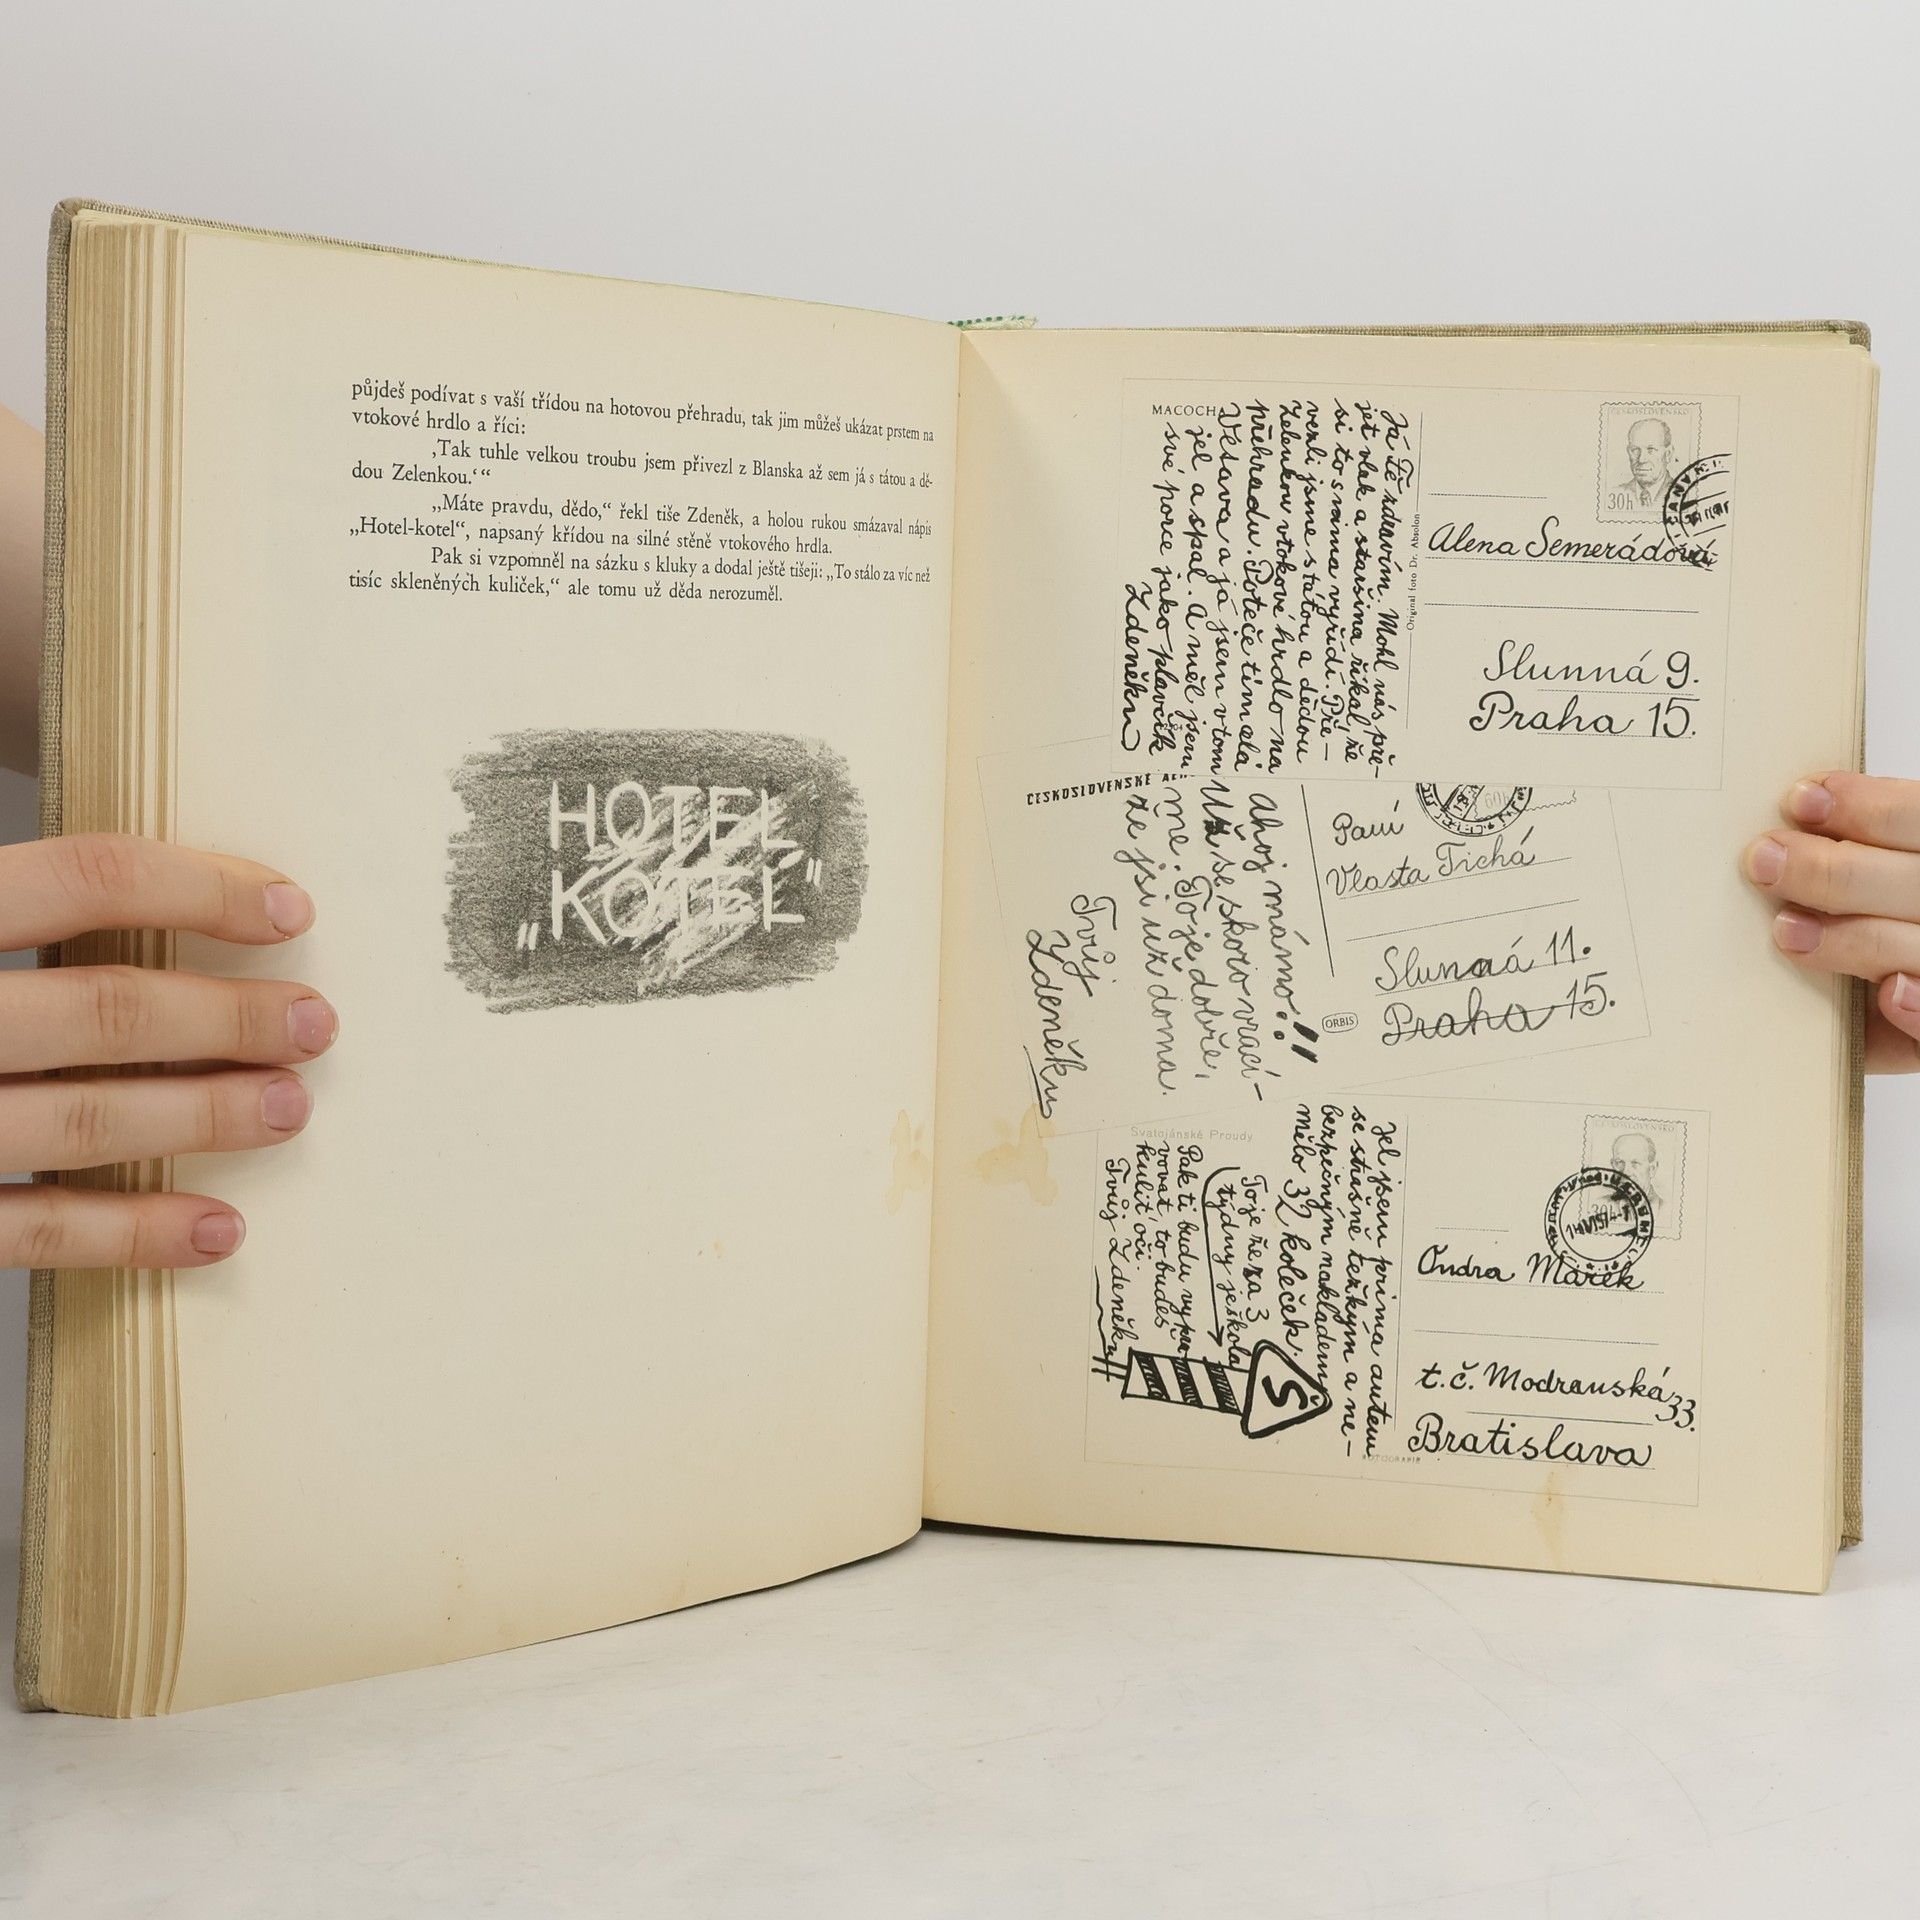 půjdeš podívat s vaší třídou na hotovou přehradu, tak jim můžeš ukázat prstem na
vtokové hrdlo a říci:
‚Tak tuhle velkou troubu jsem přivezl z Blanska až sem já s tátou a dě-
dou Zelenkou.‘“
„Máte pravdu, dědo,“ řekl tiše Zdeněk, a holou rukou smázaval nápis
„Hotel-kotel“, napsaný křídou na silné stěně vtokového hrdla.
Pak si vzpomněl na sázku s kluky a dodal ještě tišeji: „To stálo za víc než
tisíc skleněných kuliček,“ ale tomu už děda nerozuměl.
HOTEL
„KOTEL“
MACOCH
Já Tě zdravím. Mohl nás pře-
jet vlak a staršina říkal, že
si to s nima vyřídí. Pře-
vezli jsme s tátou a dědou
Zelenkou vtokové hrdlo na
přehradu. Poteče tím celá
Vltava a já jsem v tom
jel a spal. A měl jsem
své porce jako plavčík
Zdeněk
Original foto Dr. Absolon
ČESKOSLOVENSKO
30h
Alena Semerádová
Slunná 9.
Praha 15.
ČESKOSLOVENSKÉ AER
Ahoj mámo!!
Už se skoro vrací-
me. To je dobře,
že jsi už doma.
Tvůj
Zdeněk
Paní
Vlasta Tichá
Slunná 11.
Praha 15.
ORBIS
Svatojánské Proudy
Jel jsem prima autem
se strašně těžkým a ne-
bezpečným nákladem
mělo 32 koleček.
To je že za 3
týdny je škola
Pak ti budu vypra
vovat, to budeš
kulit oči.
Tvůj Zdeněk
Š
ČESKOSLOVENSKO
30h
Ondra Marek
t.č. Modranská 33.
Bratislava